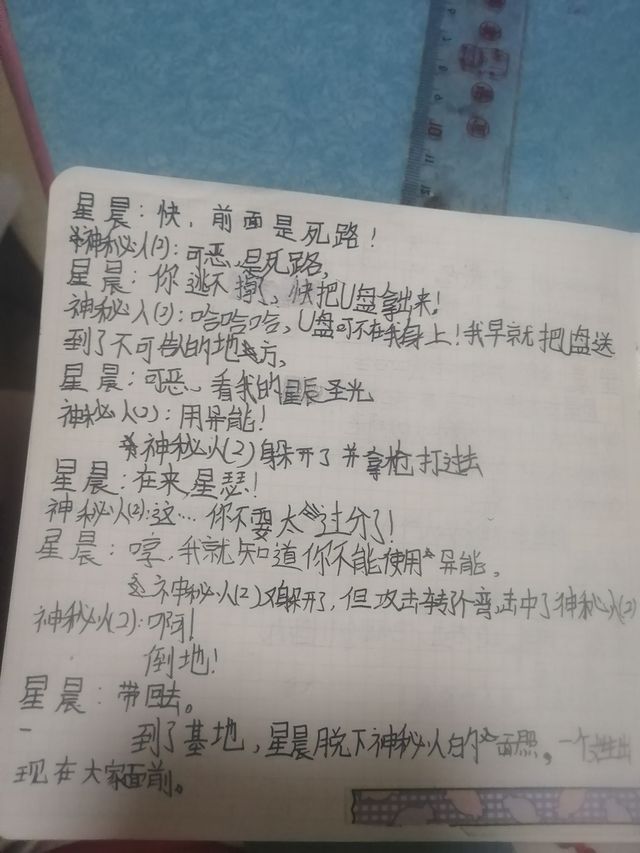 星晨：快，前面是死路！
神秘人(2)：可恶，是死路，
星晨：你逃不掉了，快把U盘拿出来！
神秘人(2)：哈哈哈，U盘可不在我身上！我早就把U盘送
到了不可告的地方，
星晨：可恶、看我的星辰圣光
神秘人(2)：用异能！
神秘人(2)躲开了并拿枪打过去
星晨：在来，星瑟！
神秘人(2)：这…你不要太过分了！
星晨：哼，我就知道你不能使用异能。
神秘人(2)又躲开了，但攻击转个弯，击中了神秘人(2)
神秘人(2)：啊！
倒地！
星晨：带回去。
到了基地，星晨脱下神秘人的面照。一个
现在大家面前。
10
11